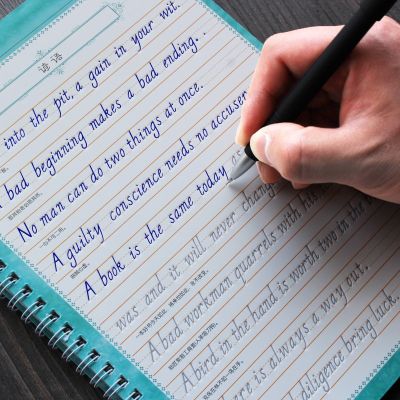 谚语
into the pit, a gain in your wit.
bad beginning makes a bad ending..
No man can do two things at once.
A guilty conscience needs no accuser
A book is the same today as
was and it will never change
A bad workman quarrels with his
A bird in the hand is worth two in the
here is always a way out.
diligence bring luck.